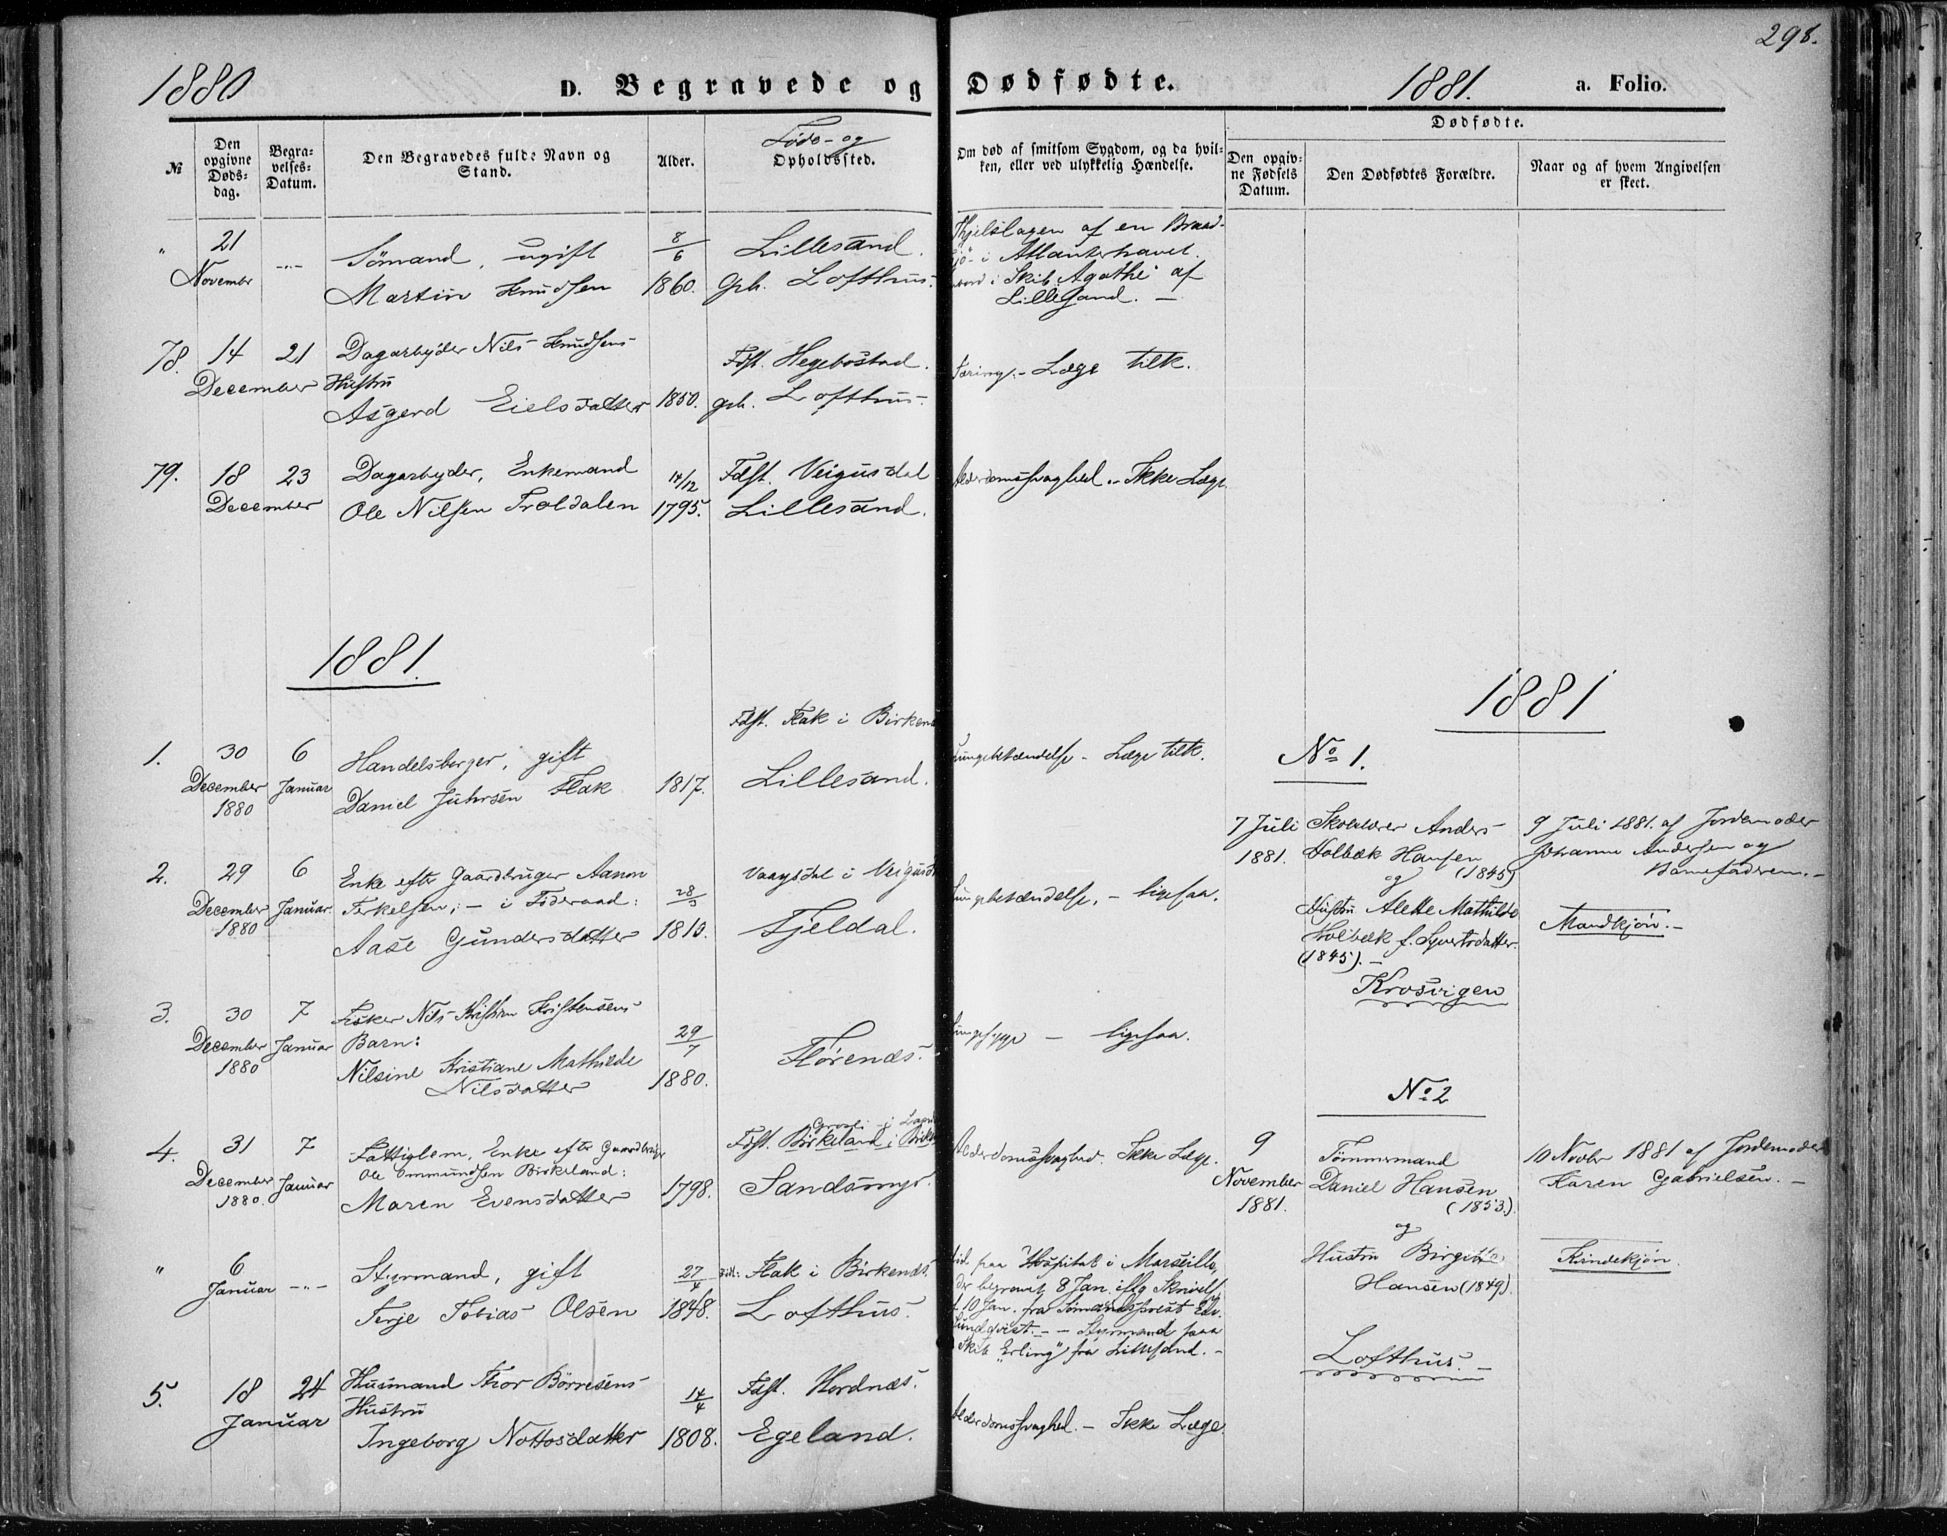 298.
1880
D. Begravede og Dødfødte.
1881.
a. Folio.
№
Den opgivne Døds-dag.
Begra-velses-Datum.
Den Begravedes fulde Navn og Stand.
Alder.
Føde- og
Opholdssted.
Om død af smitsom Sygdom, og da hvil-
ken, eller ved ulykkelig Hændelse.
Dødfødte.
Den opgiv-
ne Fødsels
Datum.
Den Dødfødtes Forældre.
Naar og af hvem Angivelsen
er skeet.
" 21 November
Sömand, ugift
Martin Knudsen
8/6 1860.
Lillesand.
Gph. Lofthus.
af en Braad-
i Atlanterhavet.
i Skib "Agathe" af
Lillesand. —
78. 14 December 21
Dagarbyder Nils Knudsens
Hustru
Asgerd Eielsdatter
1850.
Fdst. Hegebostad.
gph. Lofthus.
Læge tilk.
79. 18 23 December
Dagarbyder, Enkemand
Ole Nilsen Troldalen
14/12 1795.
Fdst. Veigusdal
Lillesand.
Alderdomssvaghed. - Ikke Læge
1881.
1881
1. 30 December 1880
6 Januar
Handelsborger, gift
Daniel Juhrsen Flak
1817.
Fdst. Flak i Birkenæs
Lillesand.
Lungebetændelse - Læge tilk.
2. 29 December 1880
6 Januar.
Enke efter Gaardbruger Aanon
Terkelsen; - i Föderaad:
Aase Gundersdatter
Vaagsdal i
Tjeldal.
Lungebetændelse. - ligesaa.
3. 30 December 1880
7 Januar
Fisker Nils Kristian Kristensens
Barn:
Nilsine Kristiane Mathilde
Nilsdatter
29/7 1880.
Flörenæs.
Lungesyge - ligesaa.
4. 31 December 1880.
7 Januar
Fattiglem, Enke efter Gaardbruger
Ole Ommundsen Birkeland:
Maren Evensdatter
1798.
Fdst. Birkeland i
Sandsmyr.
Alderdomssvaghed. Ikke Læge.
" 6 Januar
Styrmand, gift
Terje Tobias Olsen
27/4 1848.
Flak i Birkenæs.
Lofthus.
paa Hospitalet i Marseille,
Der begravet 8 Jan. iflg Skrivelse
10 Jan. fra Sömandsprest Edv.
Lundqvist. - - Styrmand paa
Skib "Erling" fra Lillesand. -
5. 18 24 Januar
Husmand Thor Börresens
Hustru
Ingeborg Nottosdatter
14/4 1808.
Fdst. Hordnæs.
Egeland.
Alderdomssvaghed. - Ikke Læge.
No 1.
7 Juli 1881.
Skolelærer Anders
Holbæk Hansen
(1845)
og
Hustru Alette Mathilde
Holbæk f. Syvertsdatter.
(1845). —
Krosvigen
9 Juli 1881. af Jordemoder
Johanne Andersen og
Barnefaderen. -
Mandkjön. -
No 2
9 November 1881.
Tömmermand
Daniel Hansen
(1853.)
og
Hustru Birgitte
Hansen (1849).
Lofthus. -
10 Novbr 1881 af Jordemoder
Karen Gabrielsen. -
Kvindekjön.